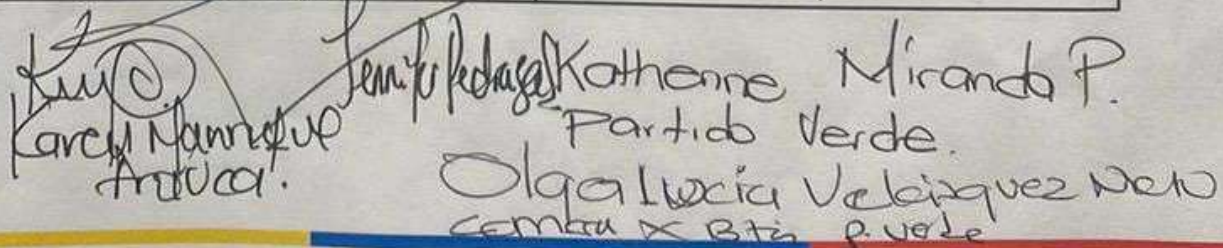 Karen Manrique
Arauca.
Jennifer Pedraza
Katherine Miranda P.
Partido Verde.
Olga Lucía Velásquez Nieto
Camara x Bta P. Verde